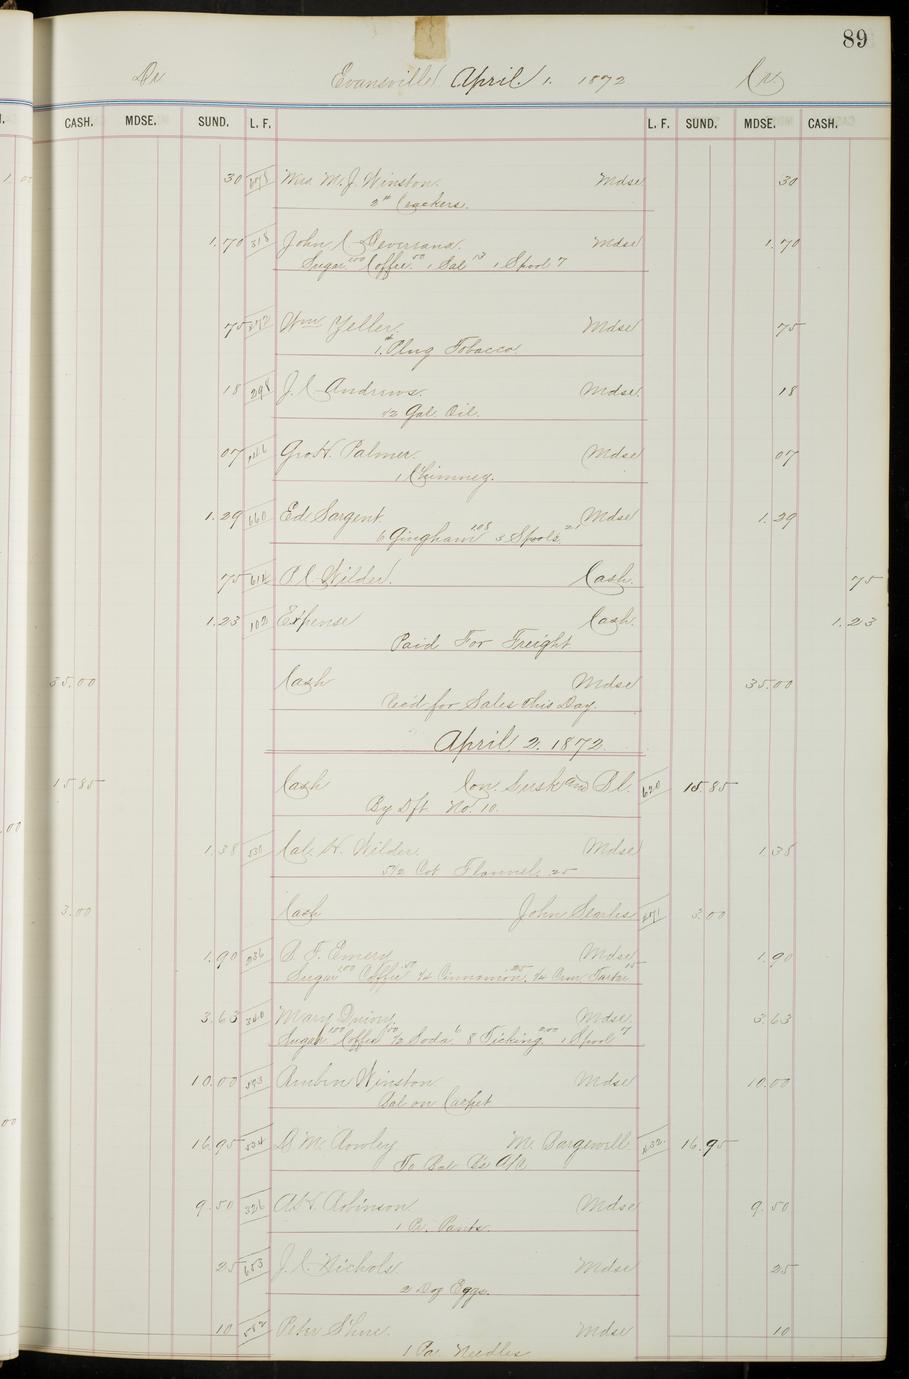 89
Dr Evansville April 1. 1872 Cr
CASH. MDSE. SUND. L. F. L. F. SUND. MDSE. CASH.
30 Mrs. M. J. Winston. Mdse 30
2# Crackers.
1.70 318 John C Mdse 1.70
Sugar 100 Coffee 50 1 13 1 Spool 7
75 272 Wm Yeller. Mdse 75
1# Plug Tobacco
18 298 J. C Andrews. Mdse. 18
1/2 Gal. Oil.
07 Geo H. Palmer. Mdse 07
1 Chimney.
1.29 660 Ed Sargent. Mdse 1.29
6 Gingham 108 3 Spools 21
75 614 P. C Wilder. Cash. 75
1.23 102 Expense Cash. 1.23
Paid For Freight
35.00 Cash Mdse 35.00
Rec'd for Sales this Day.
April 2. 1872.
15.85 Cash Con. and 620 15.85
By Dft No. 10.
1.38 531 Cal. H. Wilder. Mdse 1.38
5 1/2 Cot Flannel 25
3.00 Cash John Searles 3.00
1.90 236 F. Emery Mdse 1.90
Sugar 100 Coffee 50 1/4 Cinnamon 25 1/4 Crm Tartar 15
3.63 340 Mary Mdse 3.63
Sugar 100 Coffee 50 1/2 Soda 6 8 Ticking 200 1 Spool 7
10.00 593 Winston Mdse 10.00
Bal on Carpet
16.95 534 D M. Rowley M. 16.95
To Bal a/c
9.50 326 A. H. Robinson Mdse 9.50
1 Pr. Pants.
25 653 J. C. Nichols Mdse 25
2 Doz Eggs.
10 582 Peter Mdse 10
1 Pa. Needles